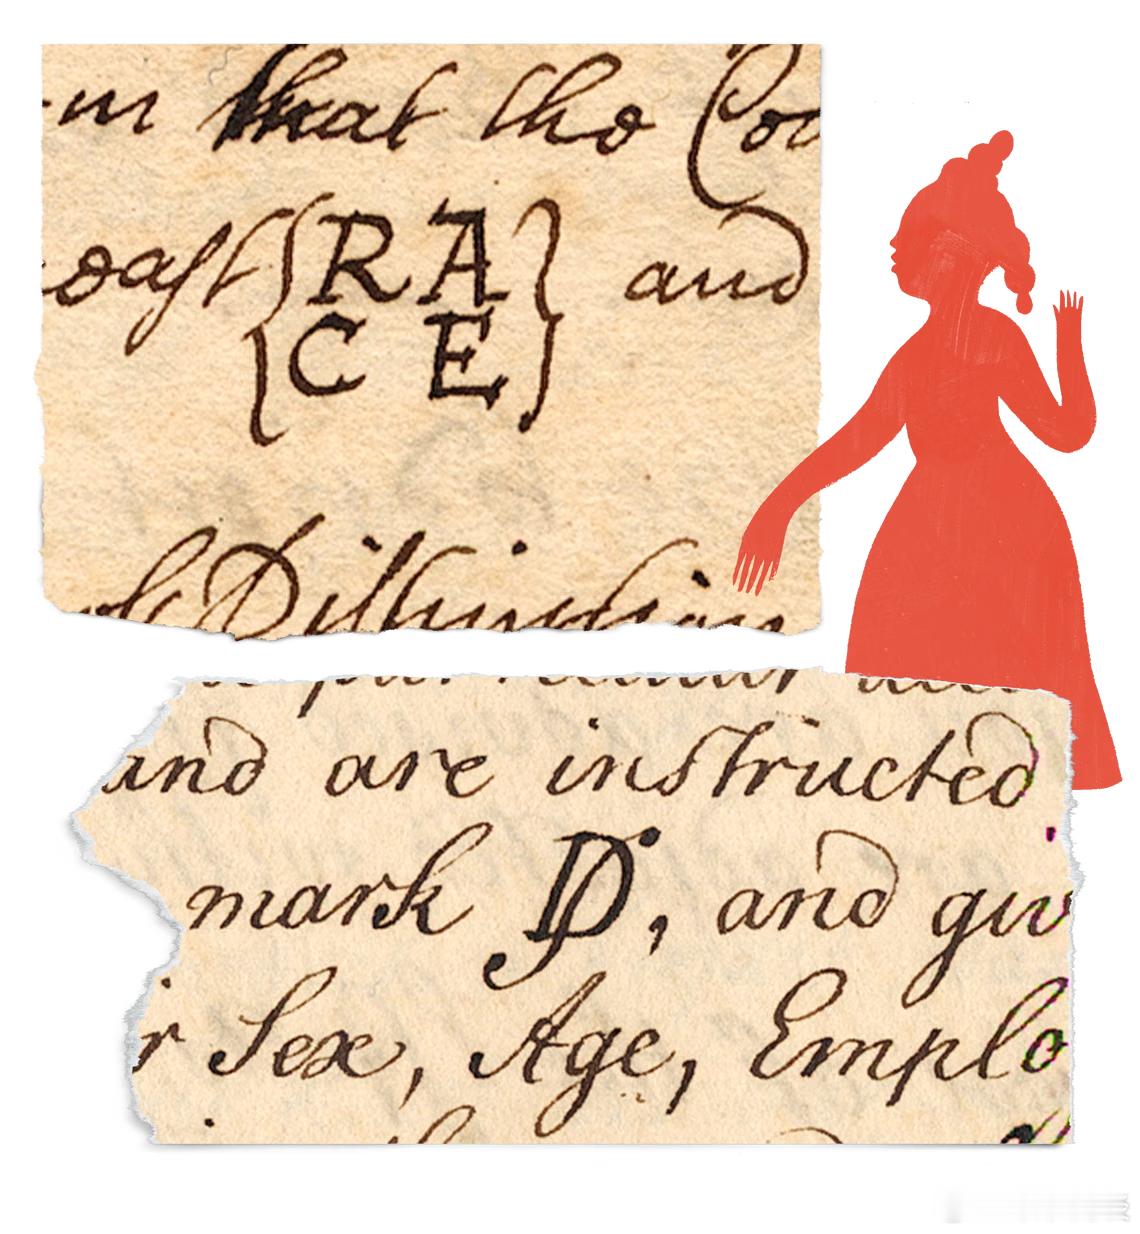 m that the Coo
oast {RA
CE} and
Distinction
and are instructed
mark D, and giv
r Sex, Age, Emplo